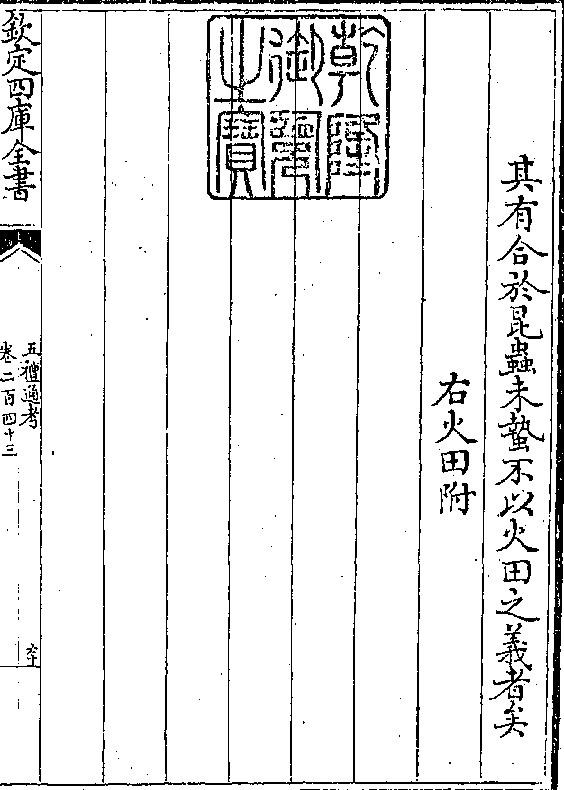 其有合於昆蟲未蟄不以火田之義者矣
右火田附
乾隆御覽之寶
欽定四庫全書
五禮通考
卷二百四十三
六十